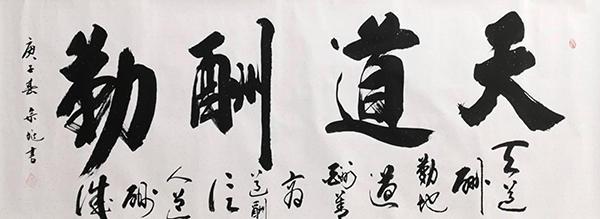 天道酬勤
天道
酬
勤地
道
酬善
商
道酬
信
人道
酬
诚
庚子春 书